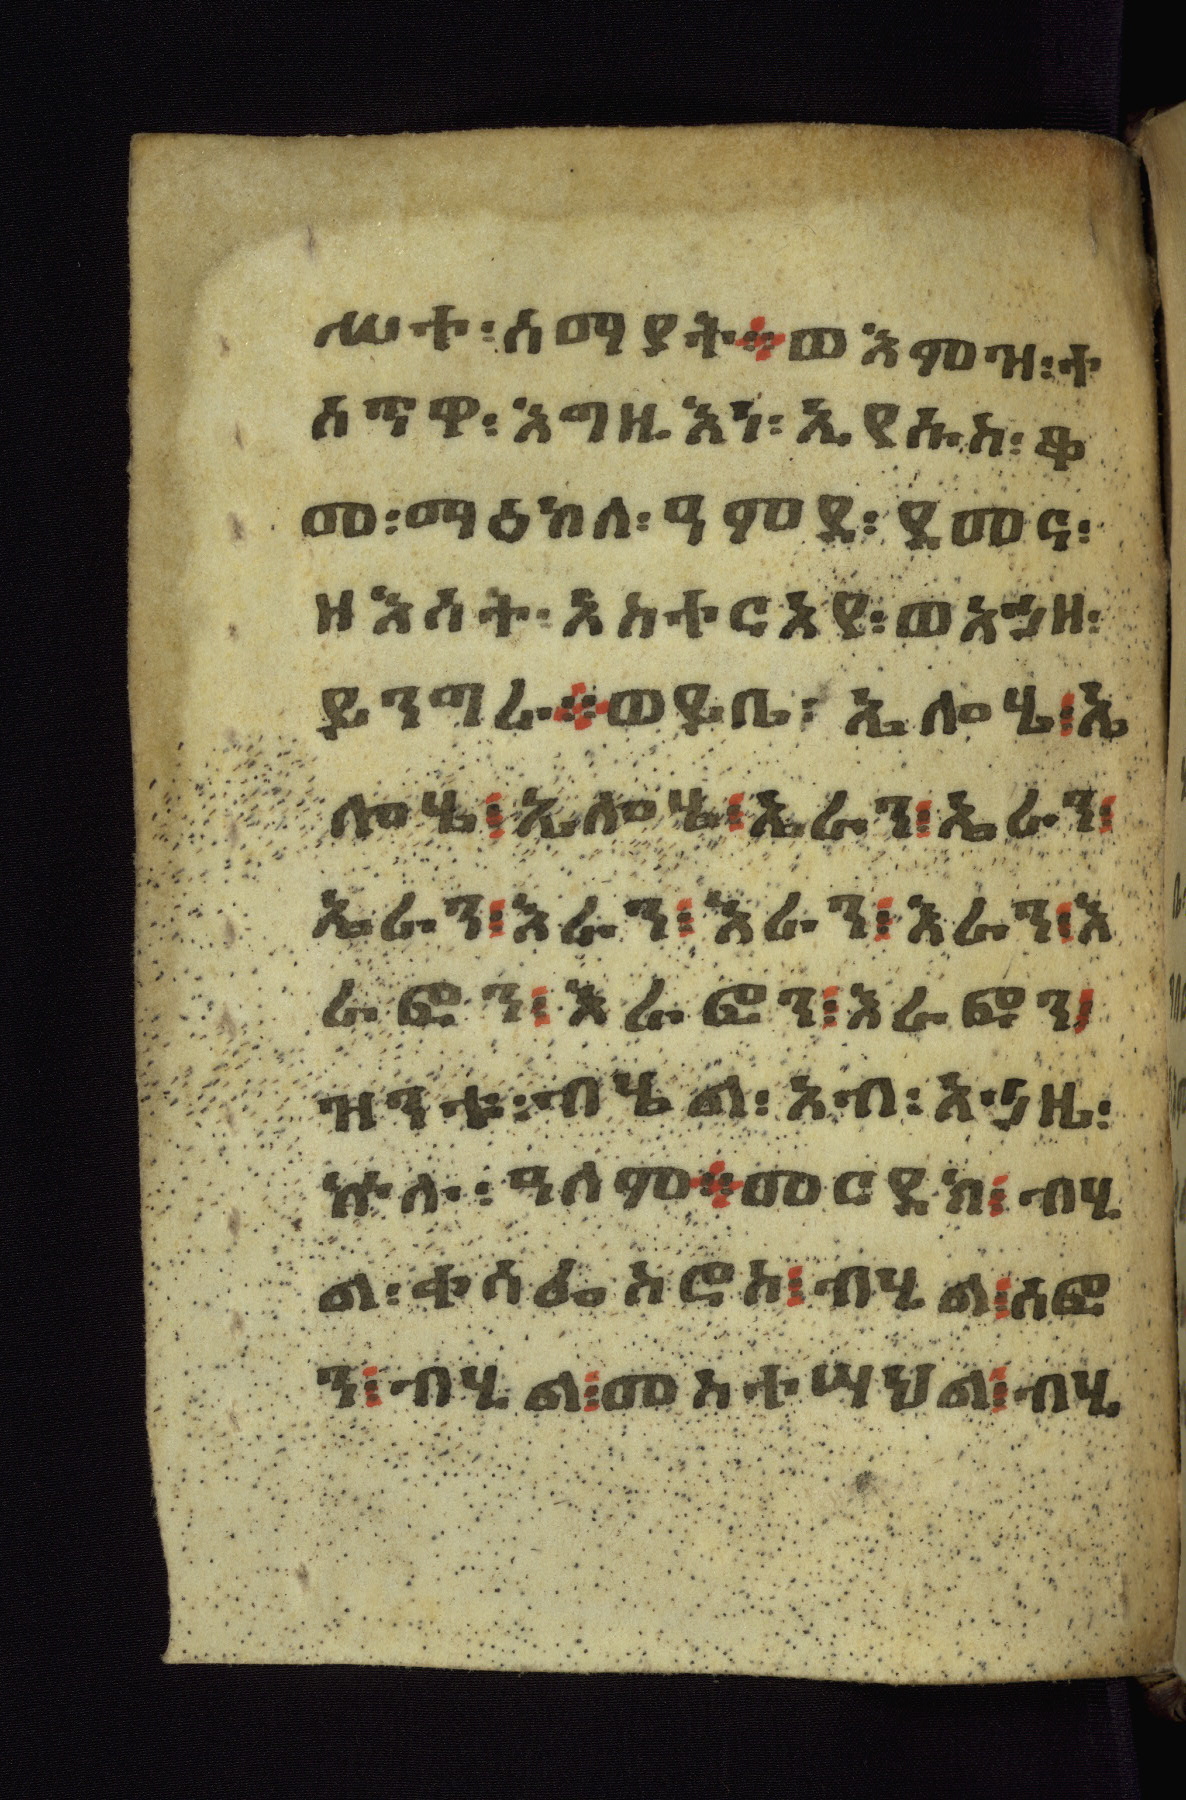 ሠተ፡ሰማያት፨ወእምዝ፡ተ
ሰጥዋ፡እግዚእነ፡ኢየሱስ፡ቆ
መ፡ማዕከለ፡ዓምደ፡ደመና፡
ዘእሳት፡እስተርእየ፡ወእኃዘ፡
ይንግራ፨ወይቤ፡ ኤሎሄ፤ኤ
ሎሄ፤ኤሎሄ፤ኤራን፤ኤራን፤
ኤራን፤እራን፤እራን፤እራን፤እ
ራፎን፤እራፎን፤እራፎን፤
ዝንቱ፡ብሄል፡አብ፡አኃዜ፡
ኵሉ፡ዓለም፨መርዳክ፤ብሂ
ል፡ቀሳፌአሮስ፤ብሂል፤ሰፎ
ን፤ብሂል፤መስተሣህል፤ብሂ